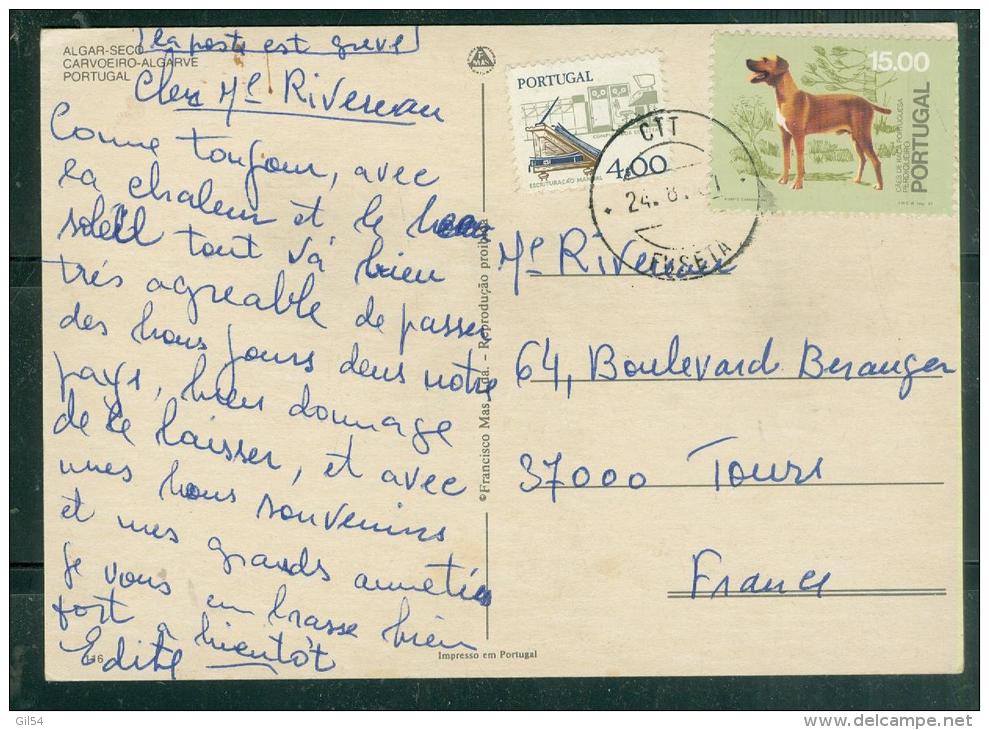 ALGAR-SECO
CARVOEIRO-ALGARVE
PORTUGAL
la poste est greve
Cher Mr Rivereau
Come toujour, avec
la chaleur et le beau
soleil tout và bien
très agreable de passer
des bons jours dans notre
pays, bien domage
de le laisser, et avec
mes bons souvenirs
et mes grands ameties
je vous embrasse bien
fort à bientôt
Edite
116
©Francisco Mas Lda. – Reprodução proibida
Impresso em Portugal
PORTUGAL
4.00
ESCRITURAÇÃO MANUAL
15.00
PORTUGAL
CÃES DE RAÇA PORTUGUESA
PERDIGUEIRO
CTT
24. 8.
FUSETA
Mr Rivereau
64, Boulevard Beranger
37000 Tours
France
Gil54
www.delcampe.net